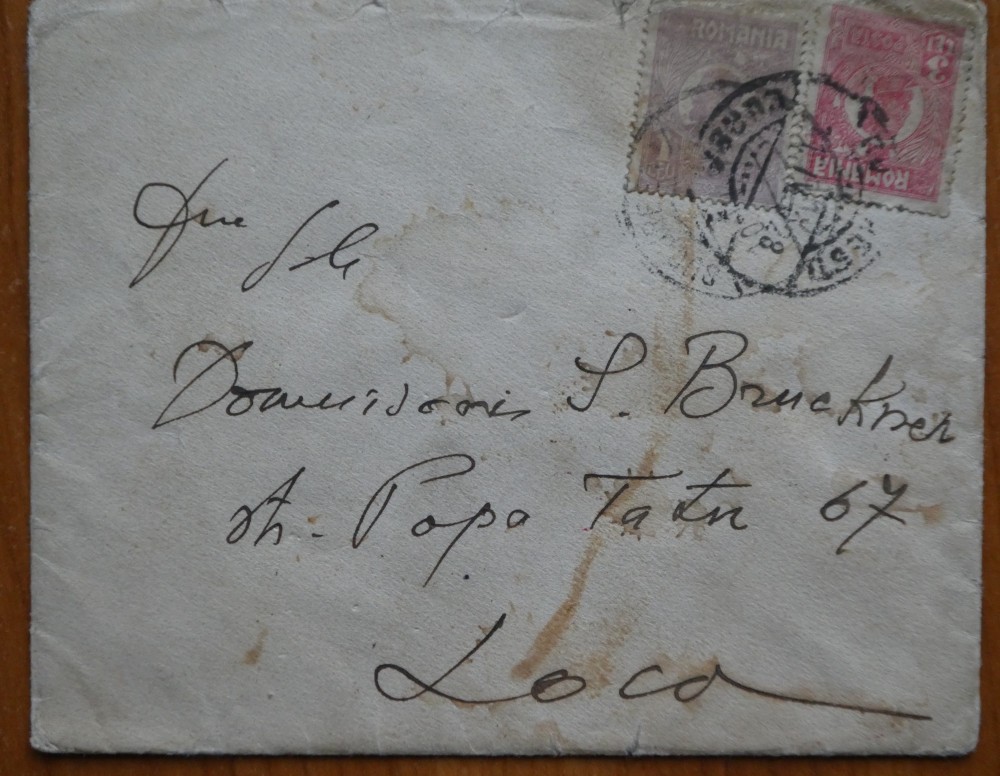 ROMANIA
3 LEI
ROMANIA
Dne Sale
Domnisoarei S. Bruckner
str. Popa Tatu 67
Loco